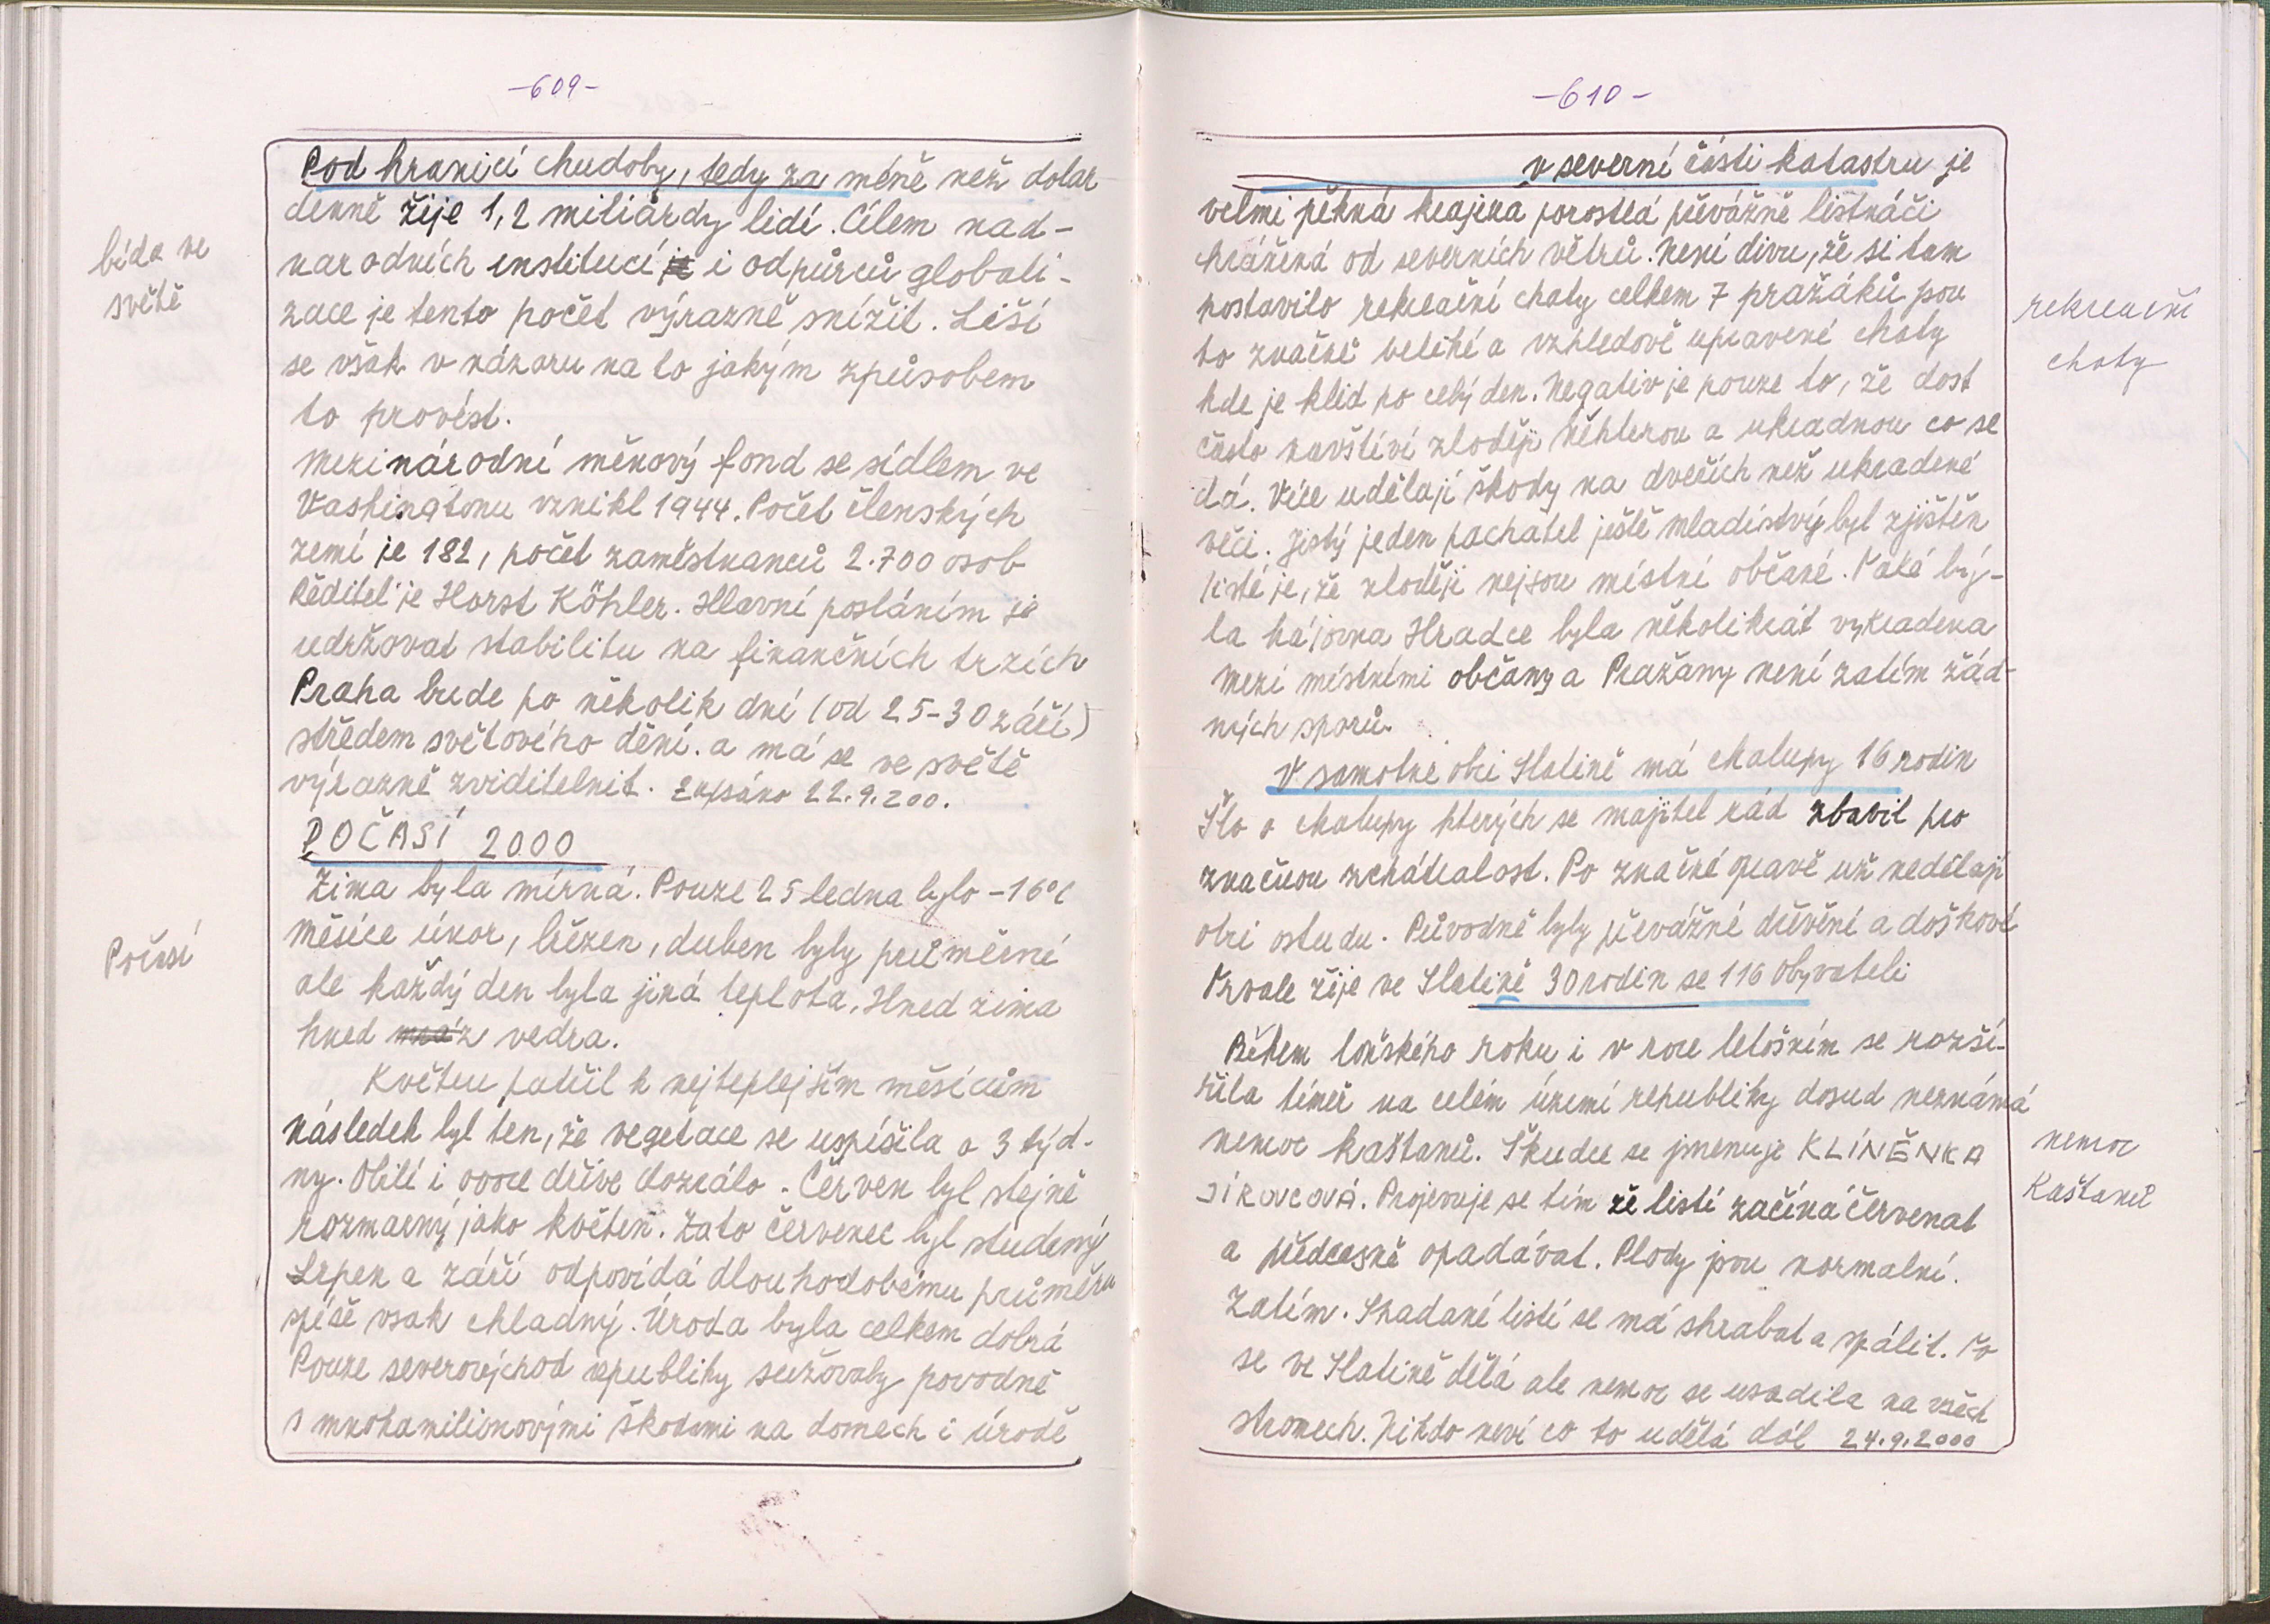 -609-
Pod hranicí chudoby, tedy za méně než dolar
denně žije 1,2 miliardy lidí. Cílem nad-
bída ve
národních institucí je i odpůrců globali-
světě
zace je tento počet výrazně snížit. Liší
se však v názoru na to jakým způsobem
to provést.
Mezinárodní měnový fond se sídlem ve
Vashingtonu vznikl 1944. Počet členských
zemí je 182, počet zaměstnanců 2.700 osob
Ředitel je Horst Köhler. Hlavní posláním je
udržovat stabilitu na finančních trzích
Praha bude po několik dní (od 25-30 září)
středem světového dění. a má se ve světě
výrazně zviditelnit. Zapsáno 22.9.200.
POČASÍ 2000
Zima byla mírná. Pouze 25 ledna bylo -16°C
Počasí
Měsíce únor, březen, duben byly průměrné
ale každý den byla jiná teplota. Hned zima
hned mráz vedra.
Květen patřil k nejteplejším měsícům
následek byl ten, že vegetace se uspíšila o 3 týd-
ny. Obilí i ovoce dříve dozrálo. Červen byl stejně
rozmarný jako květen. Zato červenec byl studený
Srpen a září odpovídá dlouhodobému průměru
spíše vsak chladný. Úroda byla celkem dobrá
Pouze severovýchod republiky sužovaly povodně
s mnohamilionovými škodami na domech i úrodě
-610-
v severní části katastru je
velmi pěkná krajina porostlá převážně listnáči
chráněná od severních větrů. Není divu, že si tam
postavilo rekreační chaty celkem 7 pražáků jsou
rekreační
to značně veliké a vzhledově upravené chaty
chaty
kde je klid po celý den. Negativ je pouze to, že dost
často navštíví zloději některou a ukradnou co se
dá. Více udělají škody na dveřích než ukradené
věci. Jistý jeden pachatel ještě mladistvý byl zjištěn
jisté je, že zloději nejsou místní občané. Také bý-
la hájovna Hradce byla několikrát vykradena
Mezi místními občany a Pražany není zatím žád-
ných sporů.
V samotné obci Slatině má chalupy 16 rodin
Šlo o chalupy kterých se majitel rád zbavil pro
značnou zchátralost. Po značné opravě už nedělají
obci ostudu. Původně byly převážně dřevění a doškové
Trvale žije ve Slatině 30 rodin se 116 obyvateli
Během loňského roku i v roce letošním se rozší-
řila téměř na celém území republiky dosud neznámá
nemoc kaštanů. Škudce se jmenuje KLÍNĚNKA
nemoc
JÍROVCOVÁ. Projevuje se tím že listí začíná červenat
kaštanů
a předcasně opadávat. Plody jsou normalní.
Zatím. Spadané listí se má shrabat a spálit. To
se ve Slatině dělá ale nemoc se usadila na všech
stromech. Nikdo neví co to udělá dál 24.9.2000